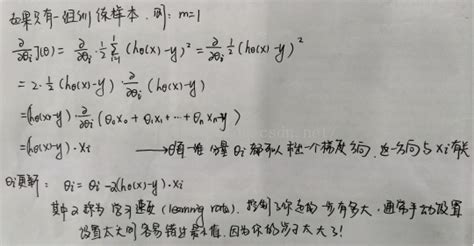 如果只有一组训练样本,则: m=1
∂/∂θi J(θ) = ∂/∂θi · 1/2 Σ (hθ(x)-y)² = ∂/∂θi 1/2 (hθ(x)-y)²
= 2· 1/2 (hθ(x)-y) · ∂/∂θi (hθ(x)-y)
=(hθ(x)-y) · ∂/∂θi (θ0x0 + θ1x1 + ··· + θnxn-y)
=(hθ(x)-y) · xi ⟶ 每一维 分量 θi 都可以 一个梯度方向, 这一方向与 xi 有关
θi更新: θi = θi -α(hθ(x)-y)·xi
其中α称为 学习速度 (learning rate), 控制了你走的一步有多大, 通常手动设置
设置太大了容易错过最小值, 因为你的步子太大了!